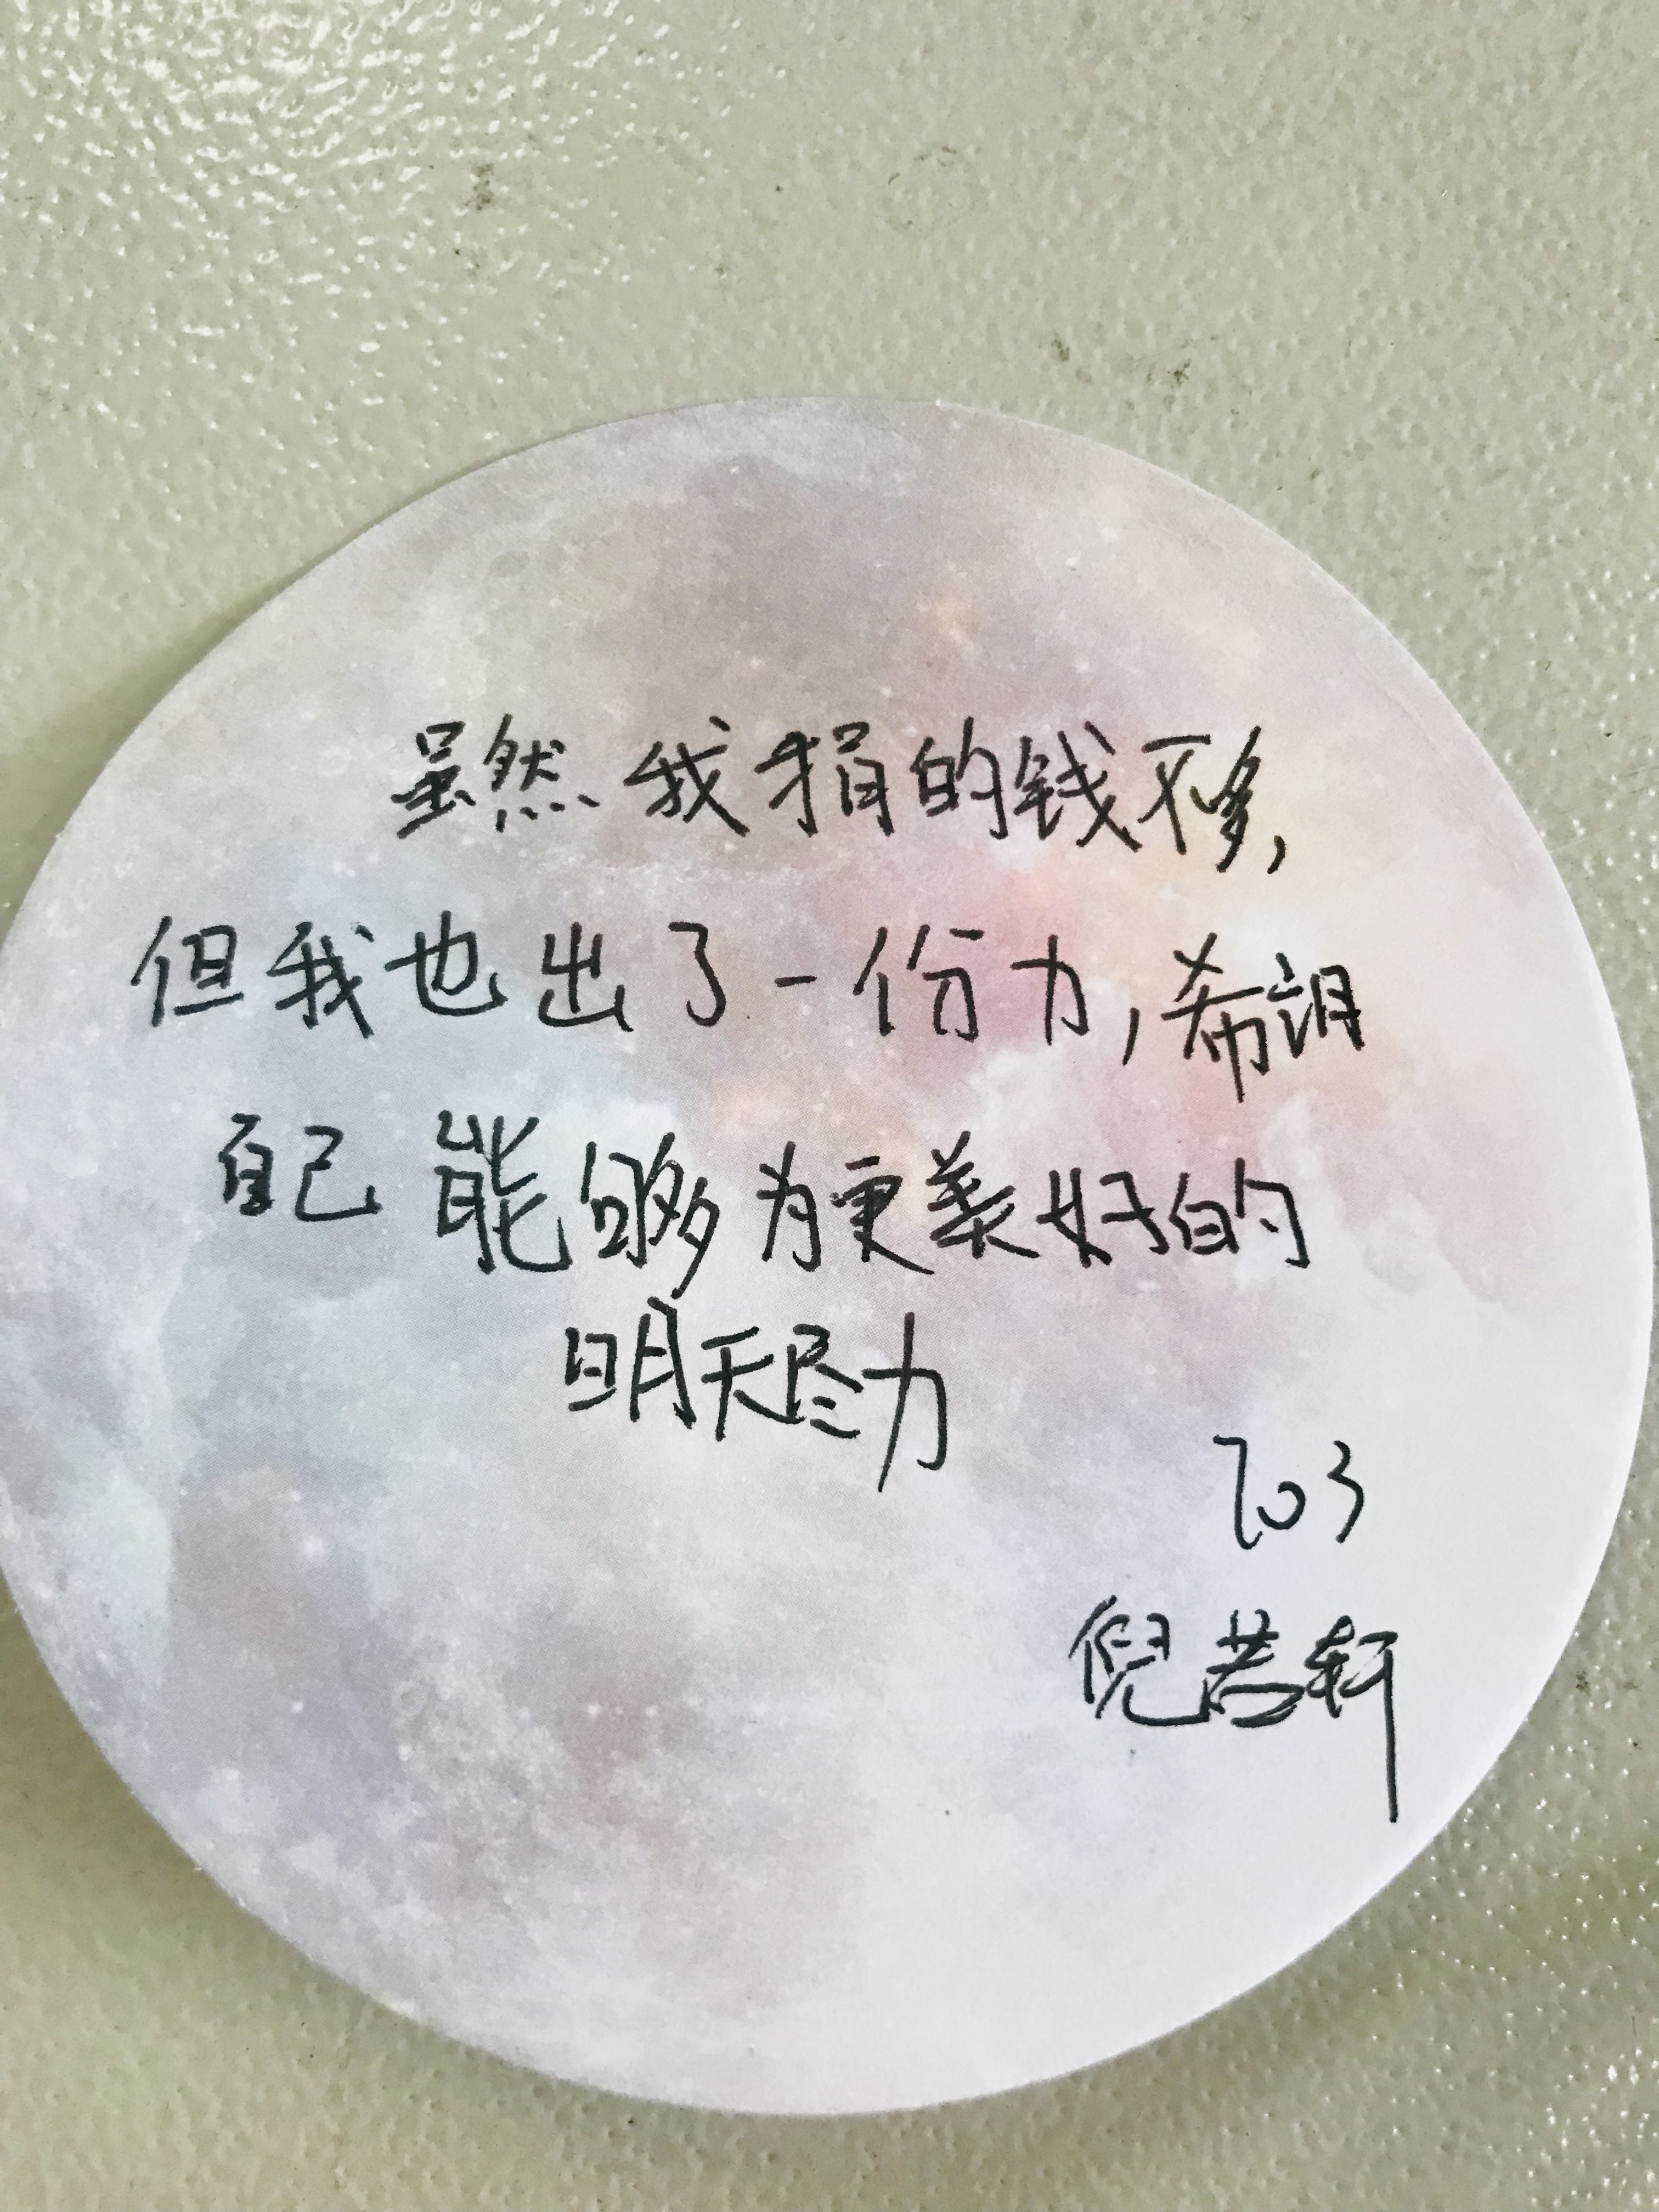 虽然我捐的钱不多,
但我也出了一份力,希望
自己能够为更美好的
明天尽力
703
倪若轩